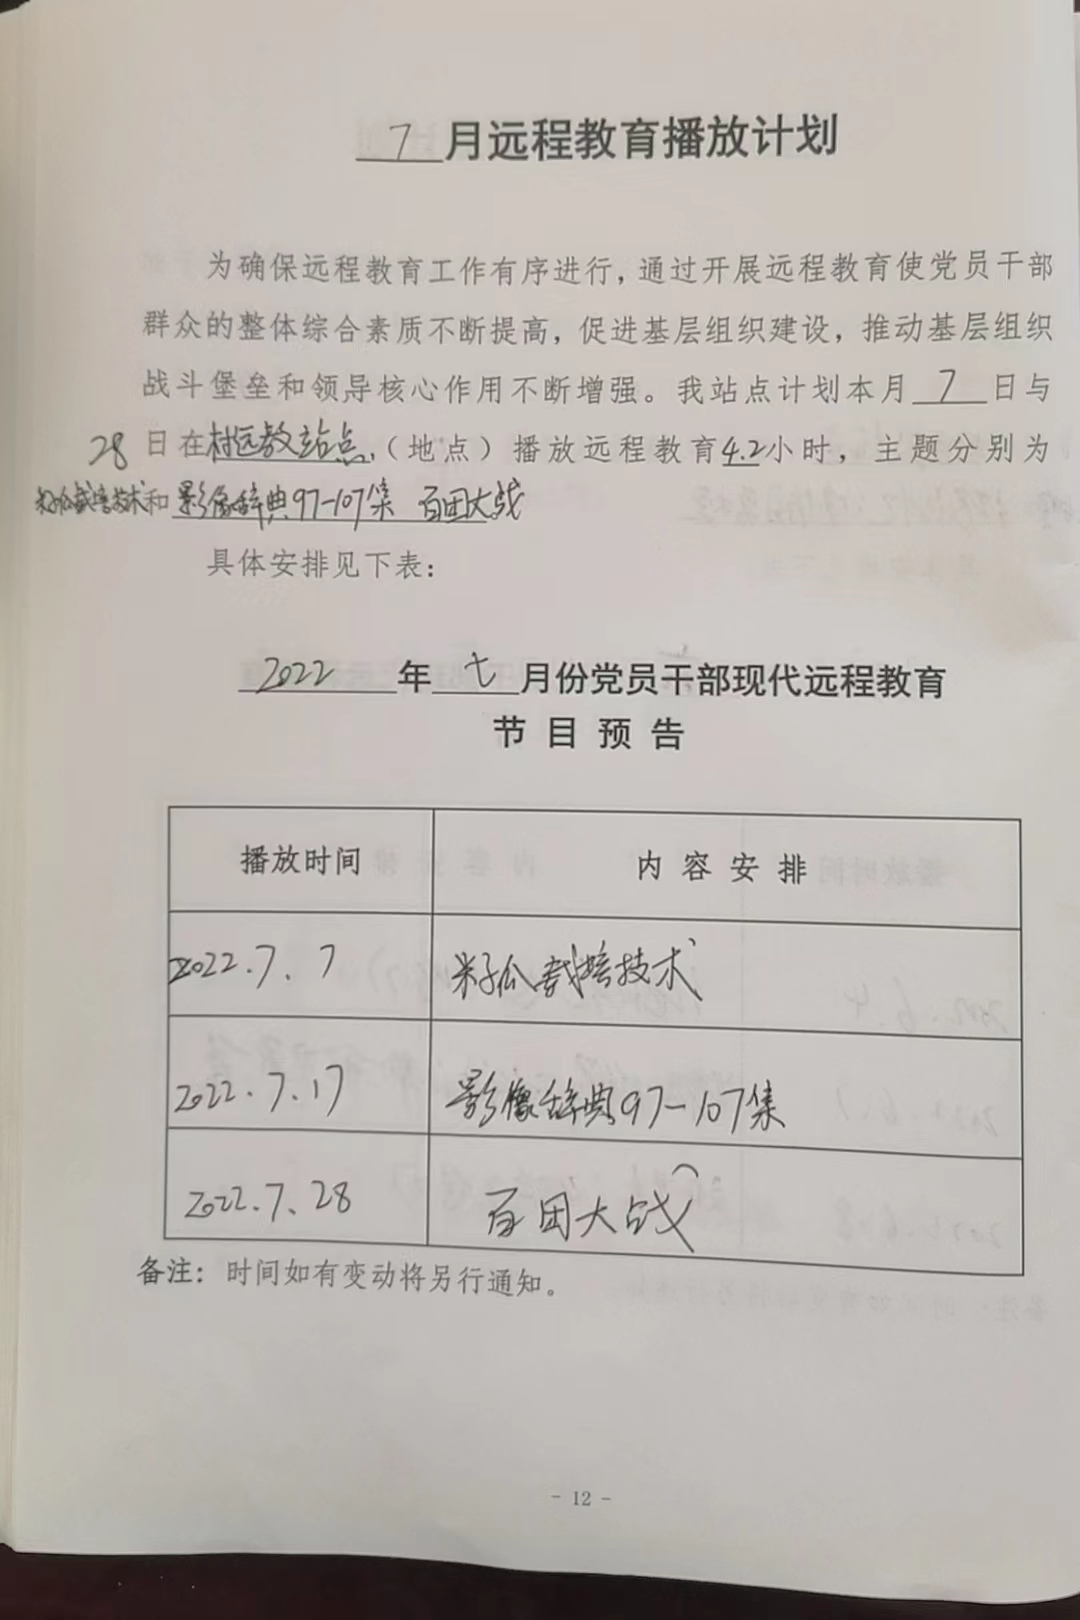 7月远程教育播放计划
为确保远程教育工作有序进行，通过开展远程教育使党员干部
群众的整体综合素质不断提高，促进基层组织建设，推动基层组织
战斗堡垒和领导核心作用不断增强。我站点计划本月7日与
28日在村远教站点（地点）播放远程教育4.2小时，主题分别为
籽瓜栽培技术和影像辞典97-107集 百团大战
具体安排见下表：
2022年七月份党员干部现代远程教育
节目预告
播放时间 内容安排
2022.7.7 籽瓜栽培技术
2022.7.17 影像辞典97-107集
2022.7.28 百团大战
备注：时间如有变动将另行通知。
- 12 -